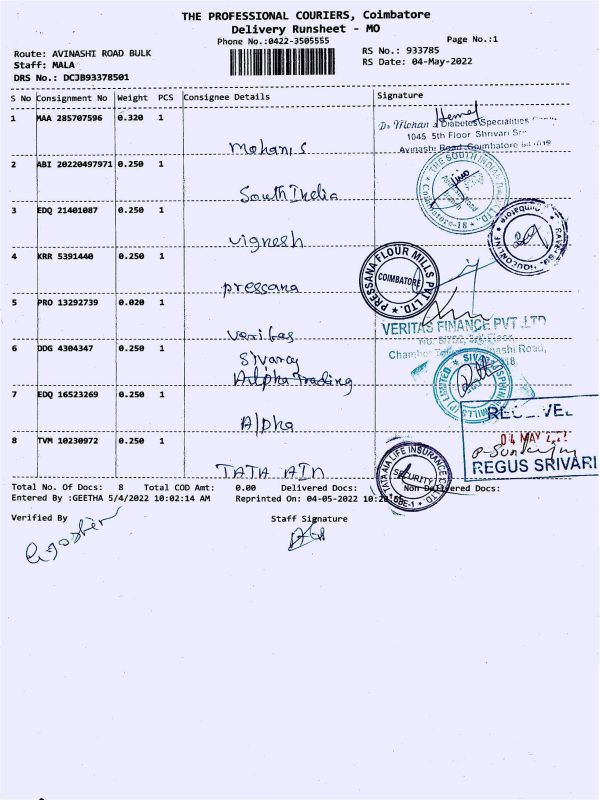 THE PROFESSIONAL COURIERS, Coimbatore
Delivery Runsheet - MO
Phone No.:0422-3505555
Page No.:1
Route: AVINASHI ROAD BULK
Staff: MALA
DRS No.: DCJB93378501
RS No.: 933785
RS Date: 04-May-2022
S No Consignment No Weight PCS Consignee Details Signature
1 MAA 285707596 0.320 1
Hemal
Dr Mohan's Diabetes Specialities
1045 5th Floor Shrivari
Avinashi Road Coimbatore
Mohan.s
2 ABI 20220497971 0.250 1
THE SOUTH INDIAN BANK LTD.
South India
3 EDQ 21401087 0.250 1
Coimbatore
vignesh
4 KRR 5391440 0.250 1
PRESSANA FLOUR MILLS PVT LTD.
COIMBATORE
pressana
5 PRO 13292739 0.020 1
VERITAS FINANCE PVT .LTD
veritas
6 DDG 4304347 0.250 1
Sivaraj
Alpha Trading
7 EDQ 16523269 0.250 1
04 MAY
Alpha
8 TVM 10230972 0.250 1
REGUS SRIVARI
TATA AIA LIFE INSURANCE CO. LTD
SECURITY
TATA AIA
Total No. Of Docs: 8 Total COD Amt: 0.00 Delivered Docs: Non Delivered Docs:
Entered By :GEETHA 5/4/2022 10:02:14 AM Reprinted On: 04-05-2022
Verified By Staff Signature